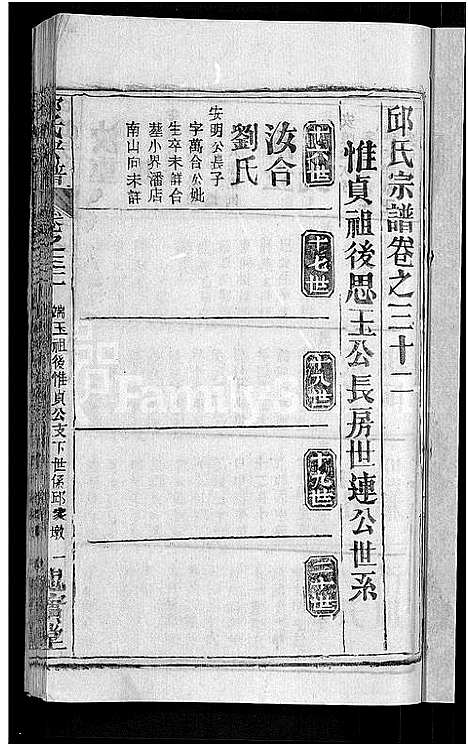 邱氏宗譜卷之三十二
惟貞祖後思玉公長房世連公世系
十六世
十七世
十八世
十九世
二十世
汝合
劉氏
安明公長子
字萬合公妣
生卒未詳合
墓小界潘店
南山向未詳
卷之三十二
端玉祖後惟貞公支下世係邱家墩
一
堂
Family